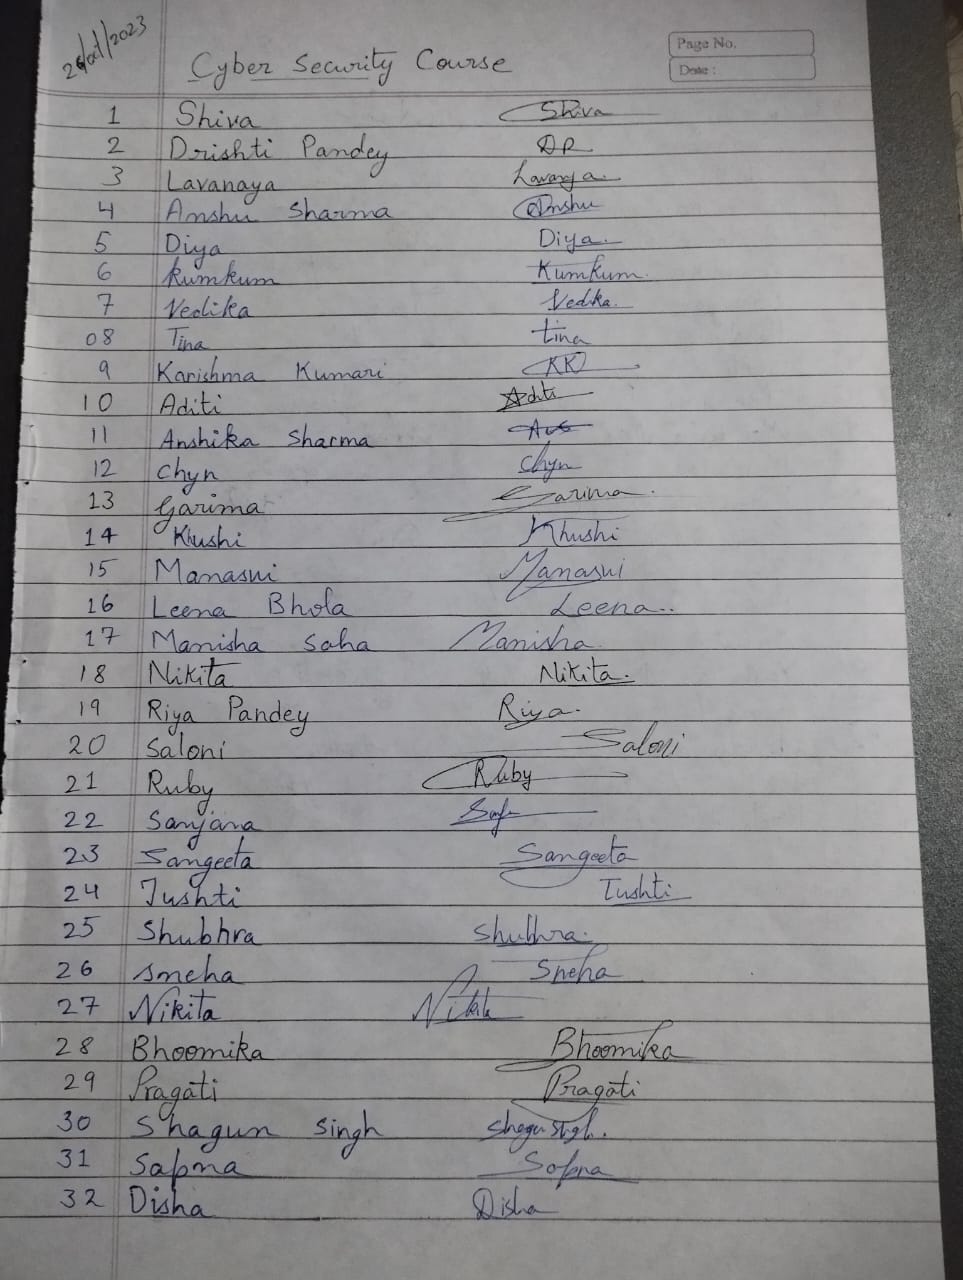 26/oct/2023
Cyber Security Course
Page No.
Date :
1 Shiva Shiva
2 Drishti Pandey DP
3 Lavanaya Lavanya
4 Anshu Sharma Anshu
5 Diya Diya.
6 Kumkum Kumkum.
7 Vedika Vedika.
08 Tina tina
9 Karishma Kumari KK
10 Aditi Aditi
11 Anshika Sharma
12 Chyn Chyn
13 Garima Garima.
14 Khushi Khushi
15 Manasvi Manasvi
16 Leena Bhola Leena..
17 Manisha Saha Manisha
18 Nikita Nikita.
19 Riya Pandey Riya.
20 Saloni Saloni
21 Ruby Ruby
22 Sanjana
23 Sangeeta Sangeeta
24 Tushti Tushti
25 Shubhra Shubhra.
26 Sneha Sneha
27 Nikita Nikita
28 Bhoomika Bhoomika
29 Pragati Pragati
30 Shagun Singh Shagun Singh.
31 Sapna Sapna
32 Disha Disha